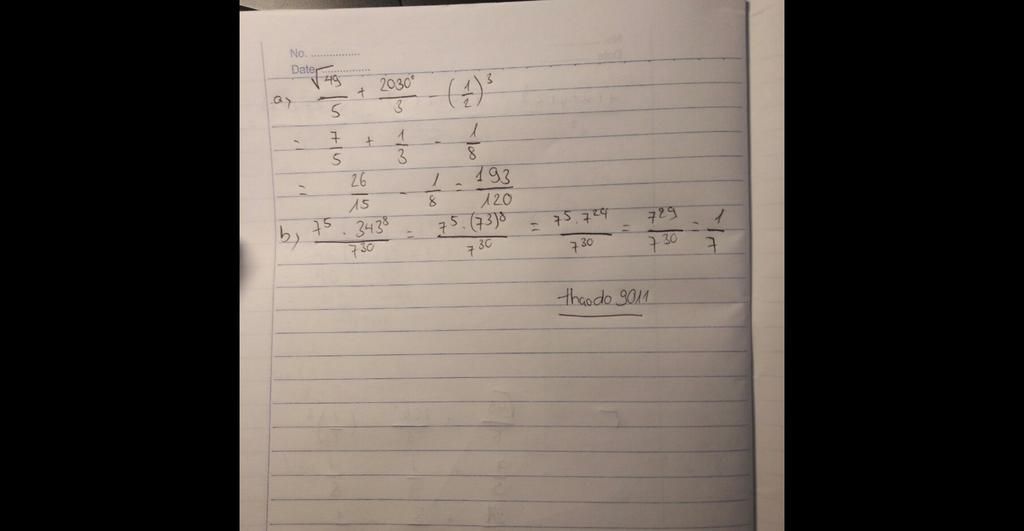 No. ................
Date ................
a, √49/5 + 2030⁰/3 - (1/2)³
= 7/5 + 1/3 - 1/8
= 26/15 - 1/8 = 193/120
b, 7⁵ . 343⁸/7³⁰ = 7⁵ . (73)⁸/7³⁰ = 7⁵ . 7²⁴/7³⁰ = 7²⁹/7³⁰ = 1/7
thaodo 9011